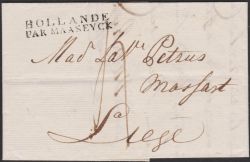 HOLLANDE
PAR MAASEYCK
Mad. la Ve. Petrus
Massart
Liege